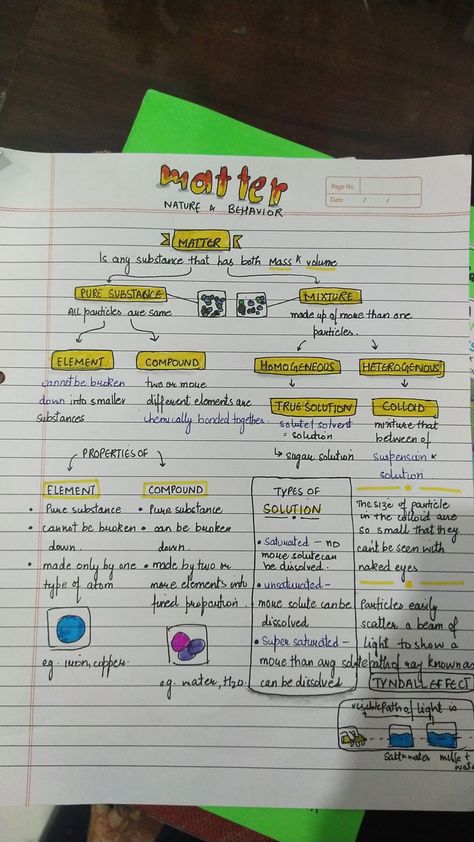 matter
NATURE & BEHAVIOR
Page No.
Date / /
MATTER
Is any substance that has both Mass & volume
PURE SUBSTANCE
All particles are same
MIXTURE
made up of more than one
particles.
ELEMENT
cannot be broken
down into smaller
substances
COMPOUND
two or more
different elements are
chemically bonded together.
HOMOGENEOUS
TRUE SOLUTION
solute+ solvent
= solution
↳ sugar solution
HETEROGENOUS
COLLOID
mixture that
between of
suspension &
solution
PROPERTIES OF
ELEMENT
• Pure substance
• cannot be broken
down.
• made only by one
type of atom
eg. iron, copper.
COMPOUND
• Pure substance
• can be broken
down.
• made by two or
more elements into
fixed propartion.
eg. water, H2O.
TYPES OF
SOLUTION
• saturated – no
more solute can
be dissolved.
• unsaturated –
more solute can be
dissolved
• Super saturated –
more than avg solute
can be dissolved
The size of particle
in the colloid are
so small that they
can't be seen with
naked eyes.
Particles easily
scatter a beam of
light to show a
path of ray known as
TYNDALL EFFECT
visible path of light is
Salt+water
milk +